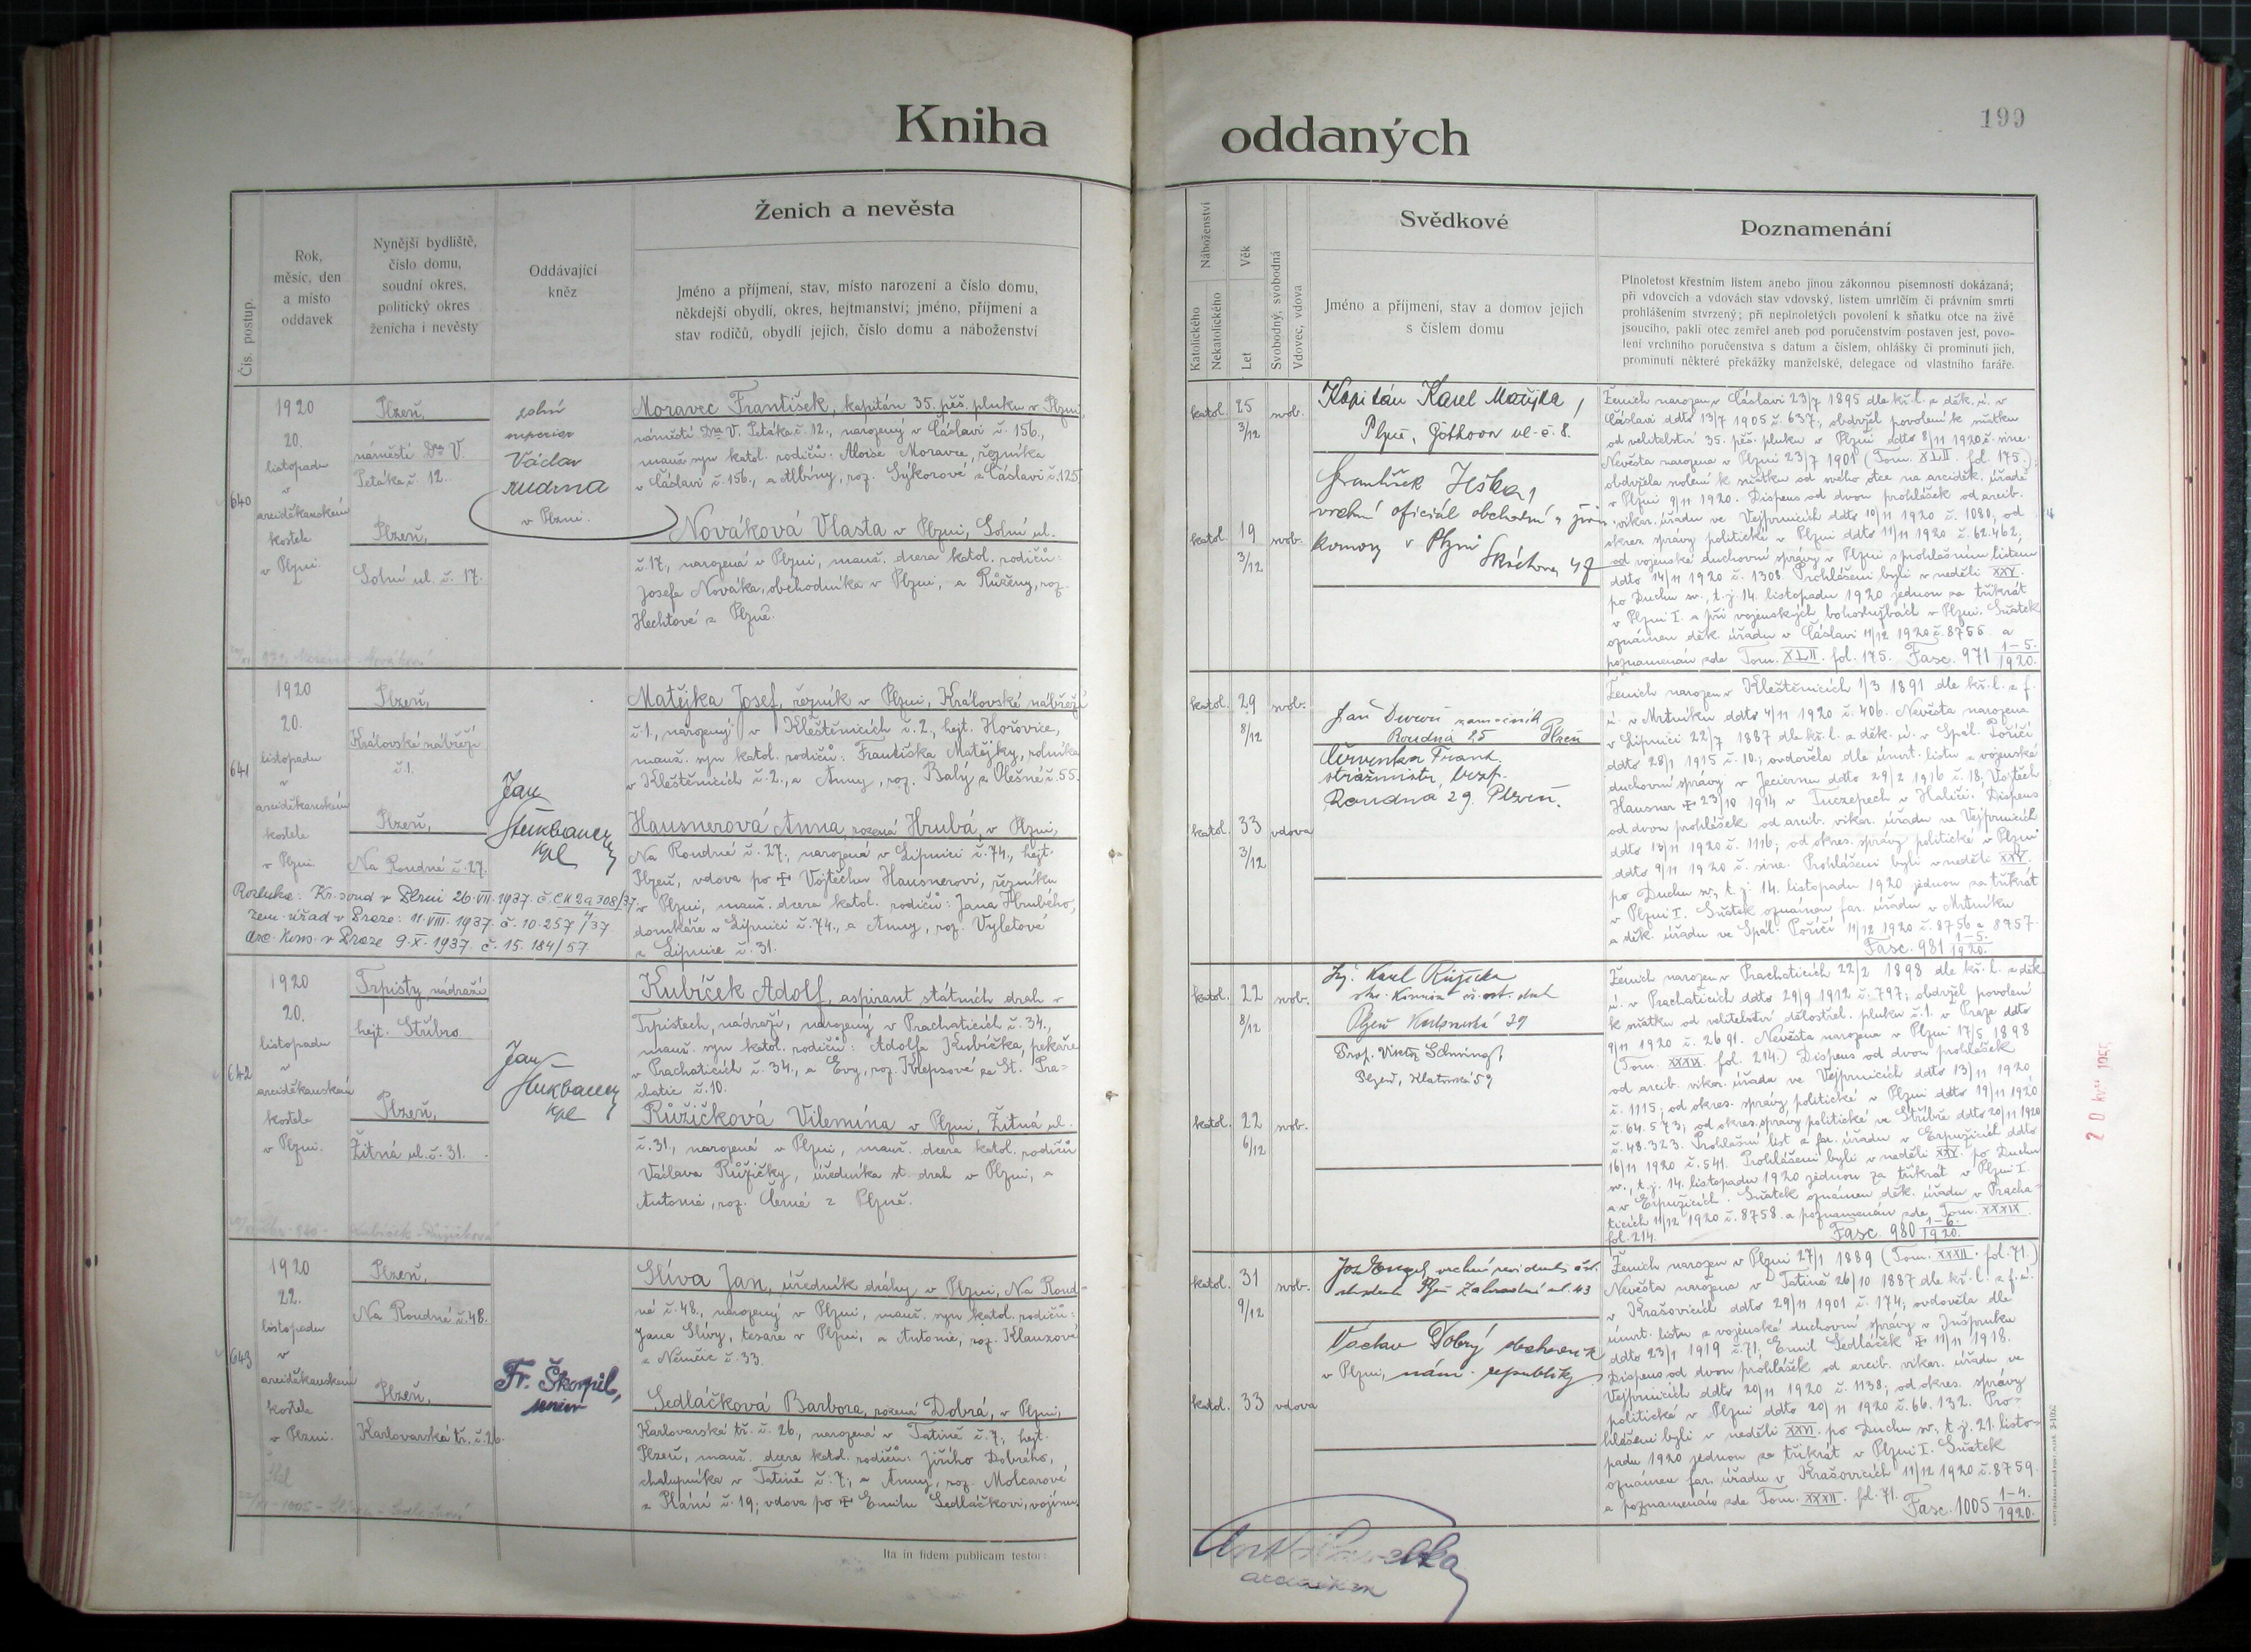 Kniha oddaných
199
Čís. postup.
Rok,
měsíc, den
a místo
oddavek
Nynější bydliště,
číslo domu,
soudní okres,
politický okres
ženicha i nevěsty
Oddávající
kněz
Ženich a nevěsta
Jméno a příjmení, stav, místo narození a číslo domu,
někdejší obydlí, okres, hejtmanství; jméno, příjmení a
stav rodičů, obydlí jejich, číslo domu a náboženství
Náboženství
Katolického
Nekatolického
Věk
Let
Svobodný, svobodná
Vdovec, vdova
Svědkové
Jméno a příjmení, stav a domov jejich
s číslem domu
Poznamenání
Plnoletost křestním listem anebo jinou zákonnou písemností dokázaná;
při vdovcích a vdovách stav vdovský, listem umrlčím či právním smrti
prohlášením stvrzený; při neplnoletých povolení k sňatku otce na živě
jsoucího, pakli otec zemřel aneb pod poručenstvím postaven jest, povo-
lení vrchního poručenstva s datum a číslem, ohlášky či prominutí jich,
prominutí některé překážky manželské, delegace od vlastního faráře.
640
1920
20.
listopadu
v
arciděkanském
kostele
v Plzni.
Plzeň,
náměstí Dra V.
Petáka č. 12.
Plzeň,
Solní ul. č. 17.
polní
superior
Václav
Rudrna
v Plzni.
Moravec František, kapitán 35. pěš. pluku v Plzni,
náměstí Dra V. Petáka č. 12., narozený v Čáslavi č. 156.,
manž. syn katol. rodičů: Aloise Moravce, řezníka
v Čáslavi č. 156., a Albíny, roz. Sýkorové z Čáslavi č. 125.
Nováková Vlasta v Plzni, Solní ul.
č. 17., narozená v Plzni, manž. dcera katol. rodičů:
Josefa Nováka, obchodníka v Plzni, a Růženy, roz.
Hechtové z Plzně.
katol. 25 svob.
3/12
katol. 19 svob.
3/12
Kapitán Karel Matějka,
Plzeň, Göthova ul. č. 8.
František Ješka,
vrchní oficiál obchodní a živn.
komory v Plzni
47
Ženich narozen v Čáslavi 23/7 1895 dle kř. l. z děk. ú. v
Čáslavi ddto 13/7 1905 č. 637, obdržel povolení k sňatku
od velitelství 35. pěš. pluku v Plzni ddto 8/11 1920 č. sine.
Nevěsta narozena v Plzni 23/7 1901 (Tom. XLII. fol. 175.);
obdržela svolení k sňatku od svého otce na arciděk. úřadě
v Plzni 9/11 1920. Dispens od dvou prohlášek od arcib.
vikar. úřadu ve Vejprnicích ddto 10/11 1920 č. 1080, od
okres. správy politické v Plzni ddto 11/11 1920 č. 62.462;
od vojenské duchovní správy v Plzni s prohlášním listem
ddto 14/11 1920 č. 1308. Prohlášeni byli v neděli XXV.
po Duchu sv., t. j. 14. listopadu 1920 jednou za třikrát
v Plzni I. a při vojenských bohoslužbách v Plzni. Sňatek
oznámen děk. úřadu v Čáslavi 11/12 1920 č. 8755. a
poznamenán zde Tom. XLII. fol. 175. Fasc. 971 1-5./1920.
641
1920
20.
listopadu
v
arciděkanském
kostele
v Plzni.
Plzeň,
Královské nábřeží
č. 1.
Plzeň,
Na Roudné č. 27.
Jan
Štukbauer
kpl
Matějka Josef, řezník v Plzni, Královské nábřeží
č. 1., narozený v Kleštěnicích č. 2., hejt. Hořovice,
manž. syn katol. rodičů: Františka Matějky, rolníka
v Kleštěnicích č. 2., a Anny, roz. Balý z Olešné č. 55.
Hausnerová Anna, rozená Hrubá, v Plzni,
Na Roudné č. 27., narozená v Lipnici č. 74., hejt.
Plzeň, vdova po ✠ Vojtěchu Hausnerovi, řezníku
v Plzni, manž. dcera katol. rodičů: Jana Hrubého,
domkáře v Lipnici č. 74., a Anny, roz. Vyletové
z Lipnice č. 31.
Rozluka: Kr. soud v Plzni 26. VII. 1937. č. CK 2a 308/37
4
Zem. úřad v Praze: 11. VIII. 1937. č. 10.257/37
Arc. kons. v Praze 9. X. 1937. č. 15.184/57
katol. 29 svob.
8/12
katol. 33 vdova
3/12
Jan zámečník
Roudná 25 Plzeň
Červenka Frant.
strážmistr, bezp.
Roudná 29. Plzeň.
Ženich narozen v Kleštěnicích 1/3 1891 dle kř. l. z f.
ú. v Mrtníku ddto 4/11 1920 č. 406. Nevěsta narozena
v Lipnici 22/7 1887 dle kř. l. z děk. ú. v Spál. Poříčí
ddto 28/1 1915 č. 10.; ovdověla dle úmrt. listu z vojenské
duchovní správy v Jeciernu ddto 29/2 1916 č. 18; Vojtěch
Hausner ✠ 23/10 1914 v Tuczepech v Haliči. Dispens
od dvou prohlášek od arcib. vikar. úřadu ve Vejprnicích
ddto 13/11 1920 č. 1116; od okres. správy politické v Plzni
ddto 9/11 1920 č. sine. Prohlášeni byli v neděli XXV.
po Duchu sv., t. j. 14. listopadu 1920 jednou za třikrát
v Plzni I. Sňatek oznámen far. úřadu v Mrtníku
a děk. úřadu ve Spál. Poříčí 11/12 1920 č. 8756 a 8757.
Fasc. 981 1-5./1920.
642
1920
20.
listopadu
v
arciděkanském
kostele
v Plzni.
Trpisty, nádraží
hejt. Stříbro.
Plzeň,
Žitná ul. č. 31.
Jan
Štukbauer
kpl
Kubíček Adolf, aspirant státních drah v
Trpistech, nádraží, narozený v Prachaticích č. 34.,
manž. syn katol. rodičů: Adolfa Kubíčka, pekaře
v Prachaticích č. 34., a Evy, roz. Klepsové ze St. Pra-
chatic č. 10.
Růžičková Vilemína v Plzni, Žitná ul.
č. 31., narozená v Plzni, manž. dcera katol. rodičů
Václava Růžičky, úředníka st. drah v Plzni, a
Antonie, roz. Černé z Plzně.
katol. 22 svob.
8/12
katol. 22 svob.
6/12
Inž. Karel Růžička
Plzeň 29
Prof. Viktor
Plzeň, Klatovská 59
Ženich narozen v Prachaticích 22/2 1898 dle kř. l. z děk.
ú. v Prachaticích ddto 29/9 1912 č. 797; obdržel povolení
k sňatku od velitelství dělostřel. pluku č. 1. v Praze ddto
9/11 1920 č. 2691. Nevěsta narozena v Plzni 17/5 1898
(Tom. XXXIX. fol. 214.) Dispens od dvou prohlášek
od arcib. vikar. úřadu ve Vejprnicích ddto 13/11 1920
č. 1115; od okres. správy politické v Plzni ddto 19/11 1920
č. 64.573; od okres. správy politické ve Stříbře ddto 20/11 1920
č. 48.323. Prohlášní list z far. úřadu v Erpužicích ddto
16/11 1920 č. 541. Prohlášeni byli v neděli XXV. po Duchu
sv., t. j. 14. listopadu 1920 jednou za třikrát v Plzni I.
a v Erpužicích. Sňatek oznámen děk. úřadu v Pracha-
ticích 11/12 1920 č. 8758. a poznamenán zde Tom. XXXIX.
fol. 214. Fasc. 980 1-6./1920.
643
1920
22.
listopadu
v
arciděkanském
kostele
v Plzni.
Plzeň,
Na Roudné č. 48.
Plzeň,
Karlovarská tř. č. 26.
Fr. Škorpil,
senior
Slíva Jan, úředník dráhy v Plzni, Na Roud-
né č. 48., narozený v Plzni, manž. syn katol. rodičů:
Jana Slívy, tesaře v Plzni, a Antonie, roz. Klausové
z Němčic č. 33.
Sedláčková Barbora, rozená Dobrá, v Plzni,
Karlovarská tř. č. 26., narozená v Tatině č. 7., hejt.
Plzeň, manž. dcera katol. rodičů: Jiřího Dobrého,
chalupníka v Tatině č. 7., a Anny, roz. Molcarové
z Pláni č. 19; vdova po ✠ Emilu Sedláčkovi, vojínu.
katol. 31 svob.
9/12
katol. 33 vdova
Jos. Engel vrchní revident čsl.
st. drah Plzeň Zahradní ul. 43
Václav Dobrý obchodník
v Plzni, nám. republiky
Ženich narozen v Plzni 27/1 1889 (Tom. XXXII. fol. 71.)
Nevěsta narozena v Tatině 26/10 1887 dle kř. l. z f. ú.
v Krašovicích ddto 29/11 1901 č. 174; ovdověla dle
úmrt. listu z vojenské duchovní správy v Inšpruku
ddto 23/1 1919 č. 71; Emil Sedláček ✠ 11/11 1918.
Dispens od dvou prohlášek od arcib. vikar. úřadu ve
Vejprnicích ddto 20/11 1920 č. 1138; od okres. správy
politické v Plzni ddto 20/11 1920 č. 66.132. Pro-
hlášeni byli v neděli XXVI. po Duchu sv., t. j. 21. listo-
padu 1920 jednou za třikrát v Plzni I. Sňatek
oznámen far. úřadu v Krašovicích 11/12 1920 č. 8759.
a poznamenán zde Tom. XXXII. fol. 71. Fasc. 1005 1-4./1920.
20 kvě 1955
Ita in fidem publicam testor:
arciděkan